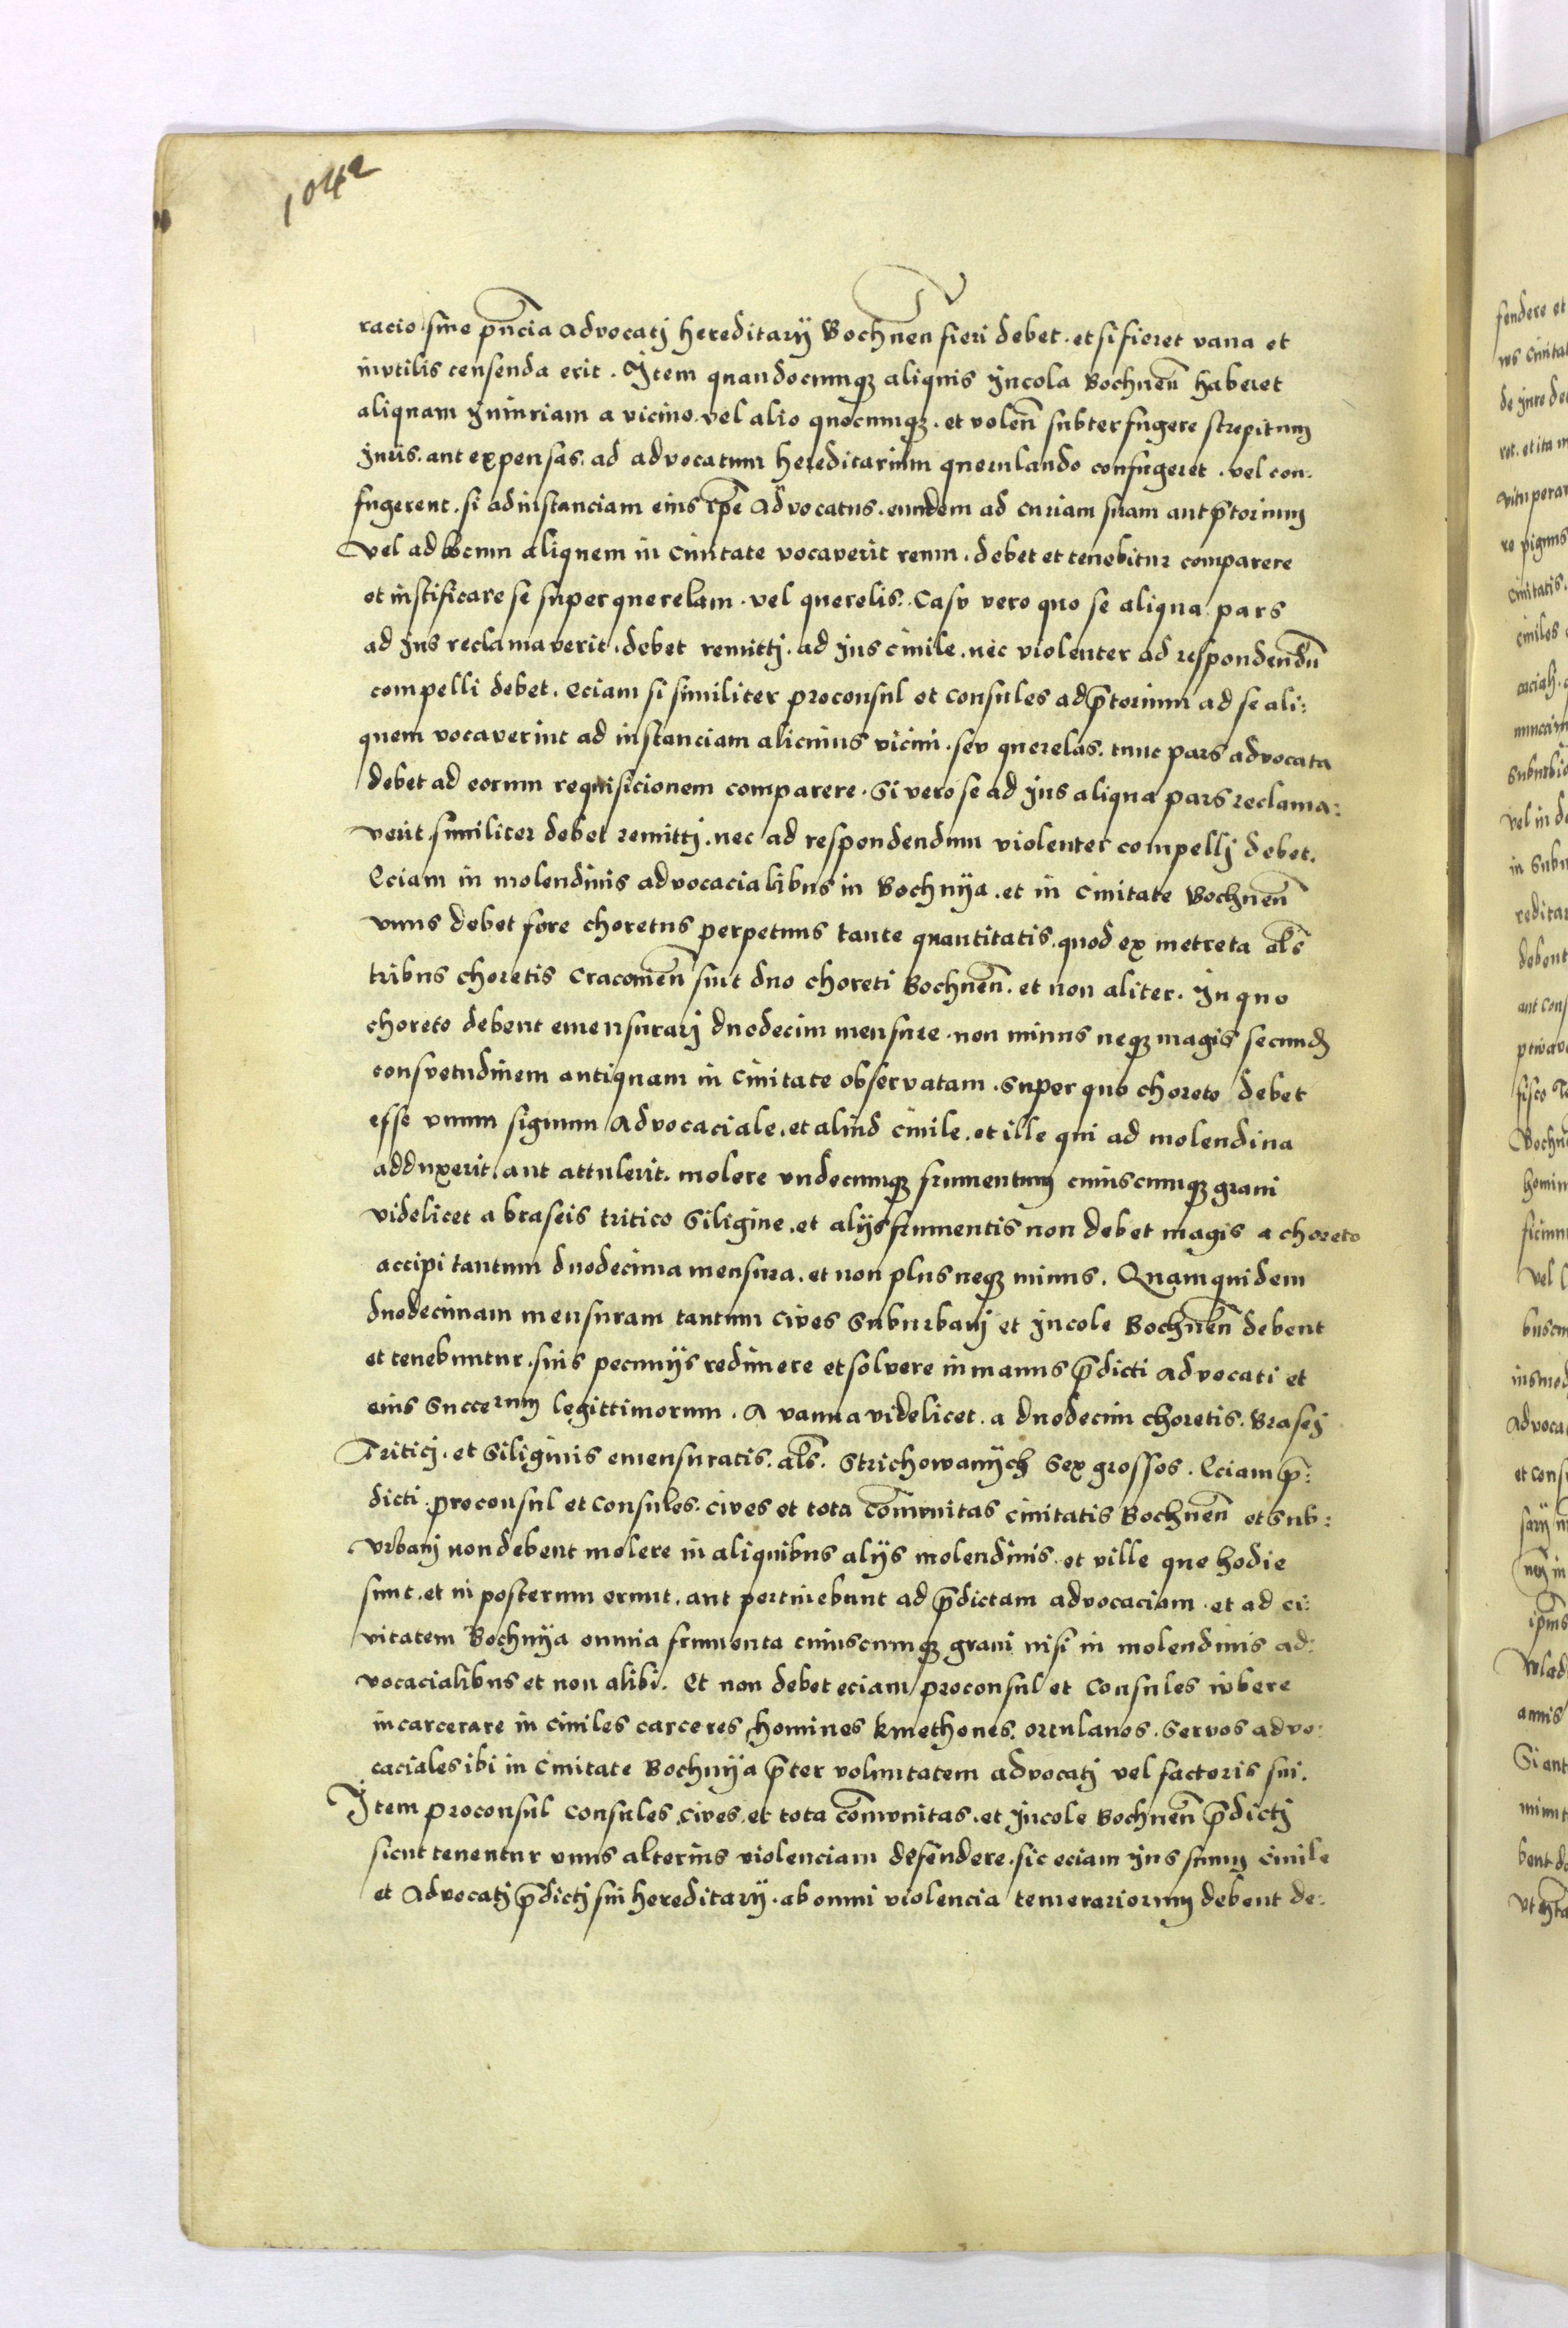 1042
racio sine pn̄cia advocatj hereditarÿ Bochnen̄ fieri debet. et si fieret vana et
invtilis censenda erit. Item quandocumqꝫ aliquis Jncola Bochnen̄ haberet
aliquam Jniuriam a vicino. vel alio quocumqꝫ. et volen̄ subterfugere strepitum
Juris. aut expensas. ad advocatum hereditarium querulando confugeret. vel con:
fugerent. si ad instanciam eius ip̄e Advocatus. eundem ad curiam suam aut p̄torium
vel ad locum aliquem in Ciuitate vocaverit reum. debet et tenebitur comparere
et iustificare se super querelam. vel querelis. Casv vero quo se aliqua pars
ad Jus reclamaverit. debet remittj. ad Jus ciuile. nec violenter ad respondendū
compelli debet. Eciam si similiter proconsul et Consules ad p̄torium ad se ali:
quem vocaverint ad instanciam alicuius vicini. sev querelas. tunc pars advocata
debet ad eorum requisicionem comparere. Si vero se ad Jus aliqua pars reclama:
verit. similiter debet remittj. nec ad respondendum violenter compellj debet.
Eciam in molendinis advocacialibus in Bochnÿa. et in Ciuitate Bochnen̄
vnus debet fore choretus perpetuus tante quantitatis. quod ex metreta al̄s
tribus choretis Cracouien̄ sint duo choreti Bochnen̄. et non aliter. Jn quo
choreto debent emensurarj duodecim mensure. non minus neqꝫ magis secundꝫ
consvetudinem antiquam in Ciuitate observatam. Super quo choreto debet
esse vnum signum Advocaciale. et aliud ciuile. et ille qui ad molendina
adduxerit. aut attulerit. molere vndecumqꝫ frumentum cuiuscumqꝫ grani
videlicet a braseis tritico Siligine. et alÿs frumentis non debet magis a choreto
accipi tantum duodecima mensura. et non plus neqꝫ minus. Quamquidem
duodecimam mensuram tantum Cives Suburbanj et Jncole Bochnen̄ debent
et tenebuntur. suis pecunÿs redimere et solvere in manus p̄dicti Advocati et
eius Succerum legittimorum. A vanna videlicet. a duodecim choretis. Brasej
Triticj. et Siliginis emensuratis. al̄s. Strichowanÿch Sex grossos. Eciam p̄:
dicti. proconsul et Consules. cives et tota Com̄vnitas ciuitatis Bochnen̄ et Sub:
vrbanj non debent molere in aliquibus alÿs molendinis. et ville que hodie
sunt. et in posterum erunt. aut pertinebunt ad p̄dictam advocaciam. et ad ci:
vitatem Bochnÿa omnia frumenta cuiuscumqꝫ grani nisi in molendinis ad:
vocacialibus et non alibi. Et non debet eciam proconsul et Consules ivbere
incarcerare in Ciuiles carceres homines kmethones. ortulanos. Servos advo:
caciales ibi in Ciuitate Bochnÿa p̄ter voluntatem advocatj vel factoris sui.
Item proconsul Consules. cives. et tota Com̄vnitas. et Jncole Bochnen̄ p̄dictj
sicut tenentur vnus alterius violenciam defendere. sic eciam Jus suum Ciuile
et Advocatj p̄dictj sui hereditarÿ. ab omni violencia temerariorum debent de: